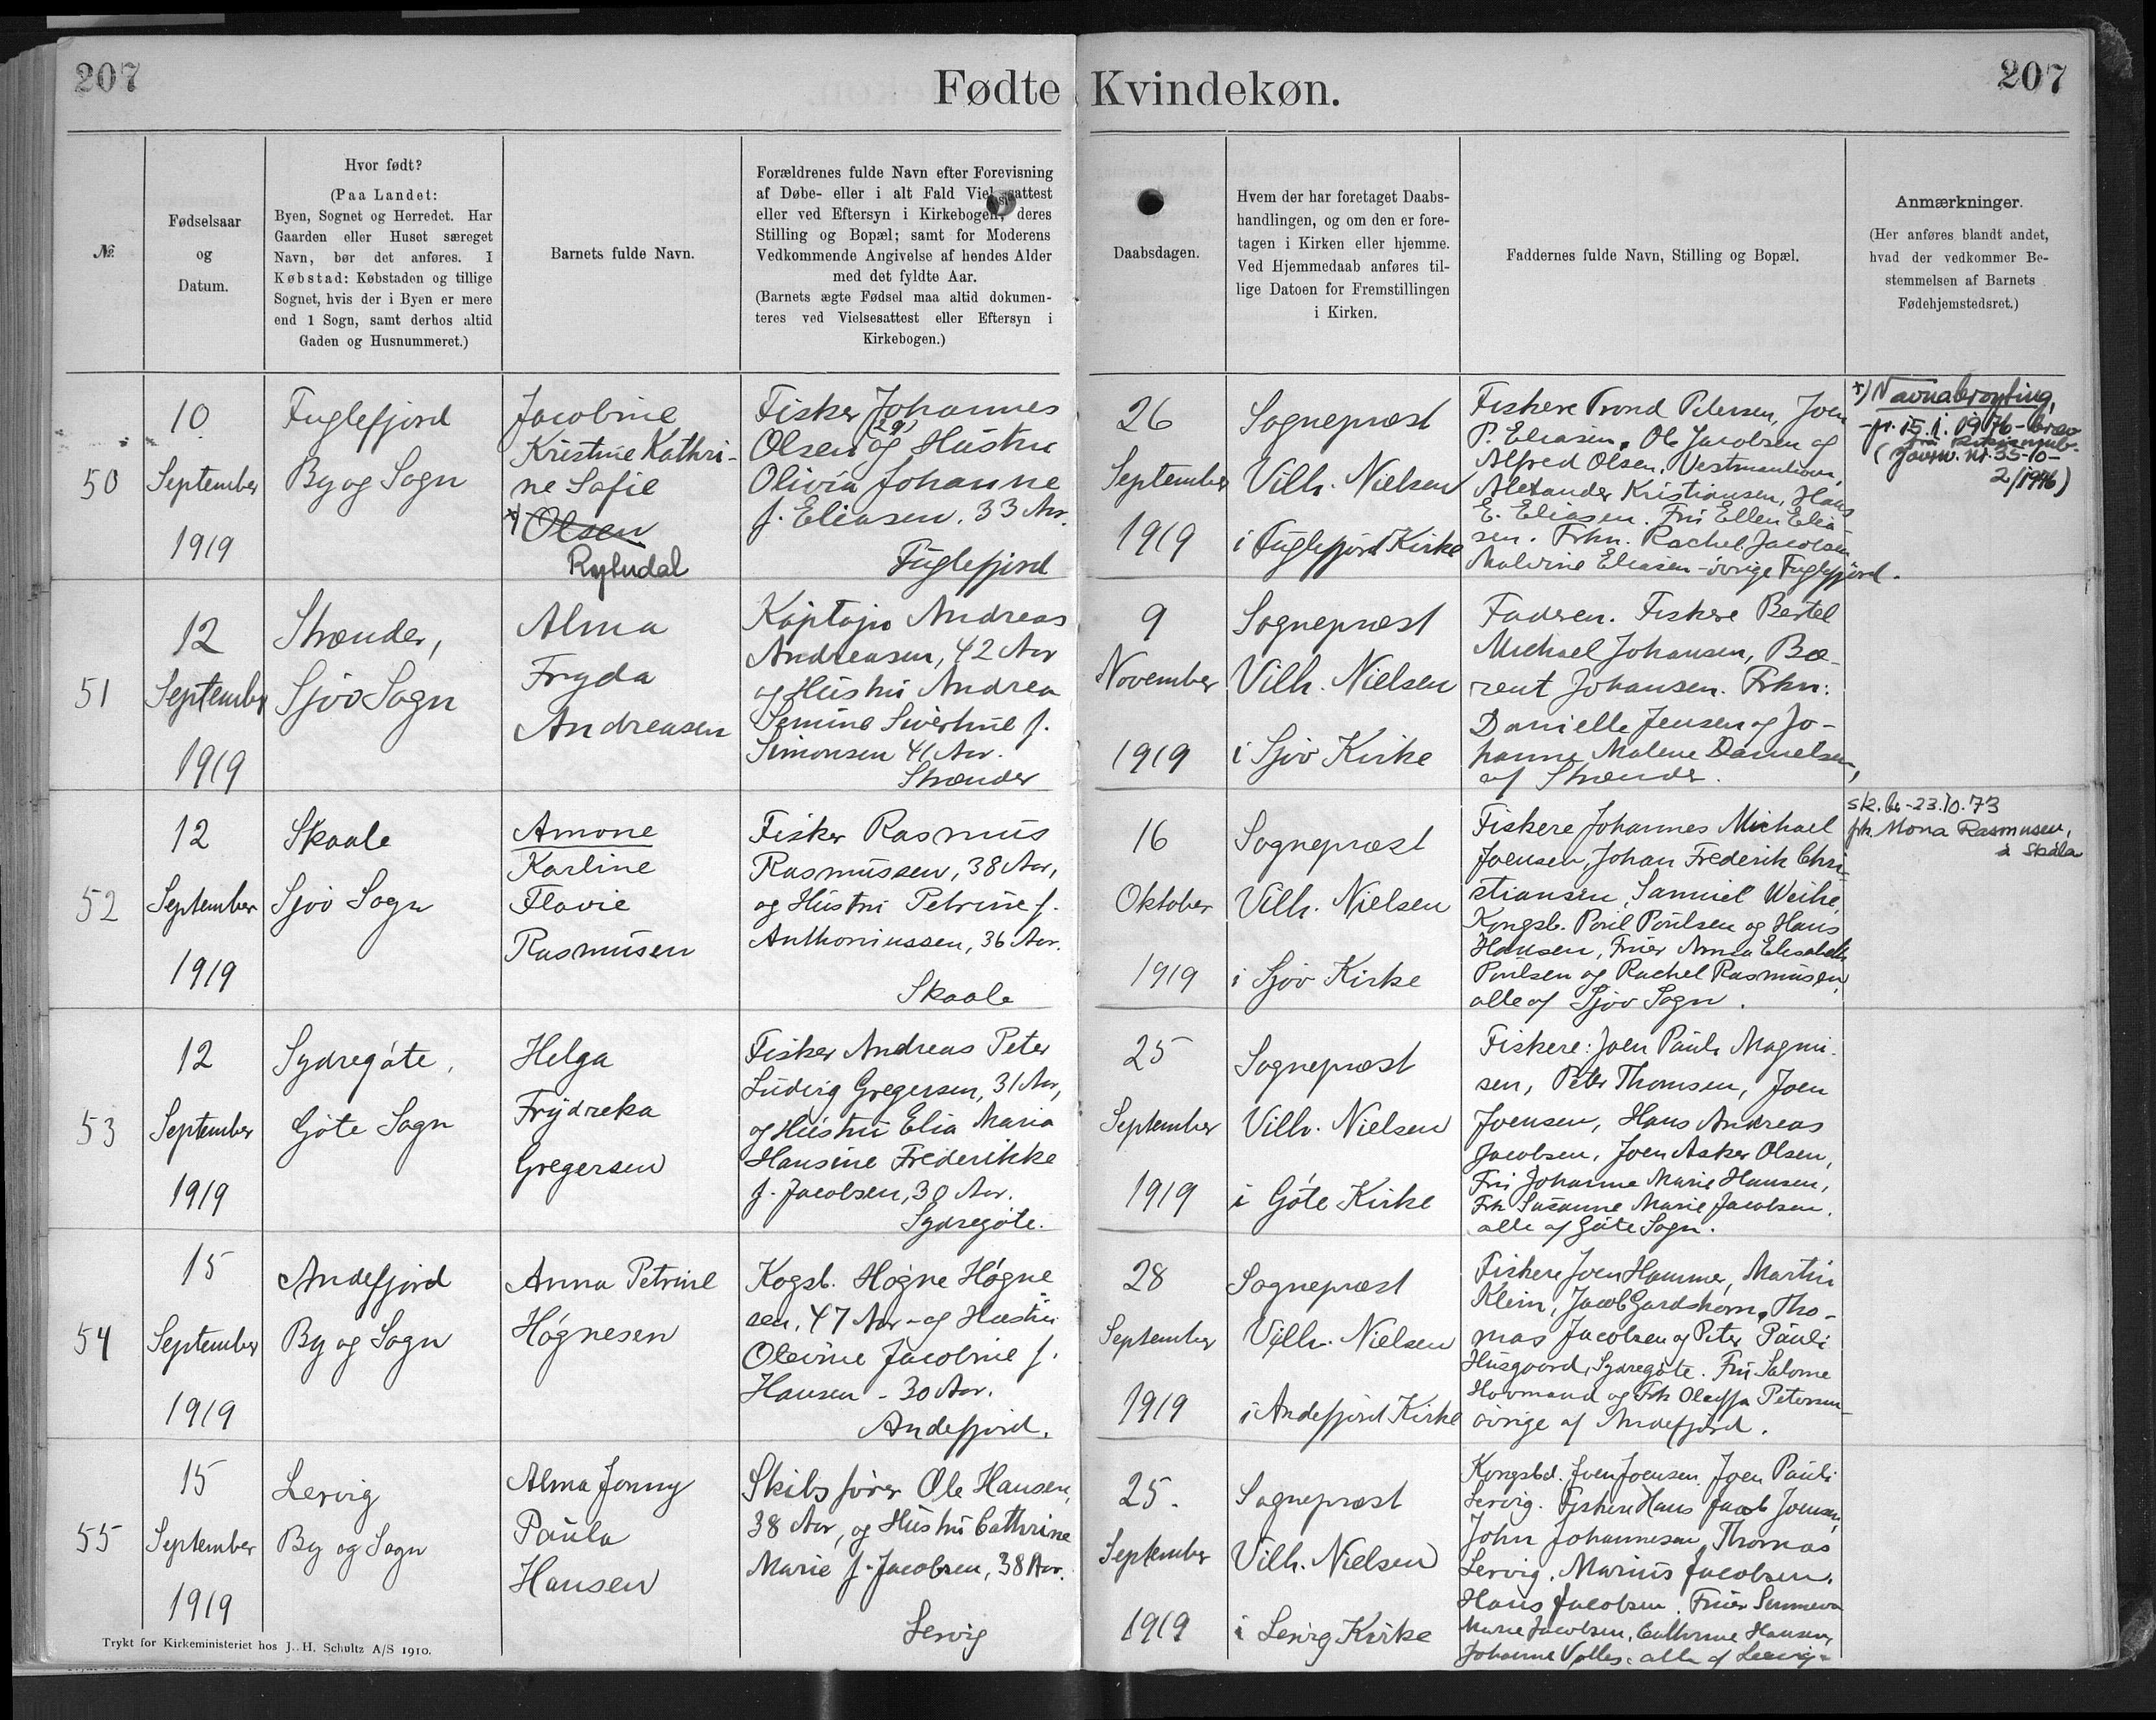 207
Fødte Kvindekøn.
207
№
Fødselsaar
og
Datum.
Hvor født?
(Paa Landet:
Byen, Sognet og Herredet. Har
Gaarden eller Huset særeget
Navn, bør det anføres. I
Købstad: Købstaden og tillige
Sognet, hvis der i Byen er mere
end 1 Sogn, samt derhos altid
Gaden og Husnummeret.)
Barnets fulde Navn.
Forældrenes fulde Navn efter Forevisning
af Døbe- eller i alt Fald Vielsesattest
eller ved Eftersyn i Kirkebogen, deres
Stilling og Bopæl; samt for Moderens
Vedkommende Angivelse af hendes Alder
med det fyldte Aar.
(Barnets ægte Fødsel maa altid dokumen-
teres ved Vielsesattest eller Eftersyn i
Kirkebogen.)
Daabsdagen.
Hvem der har foretaget Daabs-
handlingen, og om den er fore-
tagen i Kirken eller hjemme.
Ved Hjemmedaab anføres til-
lige Datoen for Fremstillingen
i Kirken.
Faddernes fulde Navn, Stilling og Bopæl.
Anmærkninger.
(Her anføres blandt andet,
hvad der vedkommer Be-
stemmelsen af Barnets
Fødehjemstedsret.)
50
10
September
1919
Fuglefjord
By og Sogn
Jacobine
Kristine Kathri-
ne Sofie
x) Olsen
Ryhudal
Fisker Johannes
Olsen (29) og Hustru
Olivia Johanne
f. Eliasen, 33 Aar.
Fuglefjord
26
September
1919
Sognepræst
Vilh. Nielsen
i Fuglefjord Kirke
Fiskere Trond Petersen, Joen
P. Eliasen, Ole Jacobsen og
Alfred Olsen, Vestmanhavn,
Alexander Kristiansen, Hans
E. Eliasen. Fru Ellen Elia-
sen. Frkn. Rachel Jacobsen
Malvine Eliasen - øvrige Fuglefjord.
x) Navnabroyting,
-pr. 15.1. 1976 - bræv
(Journ. nr. 35-10-
2/1976)
51
12
September
1919
Strænder,
Sjov Sogn
Alma
Fryda
Andreasen
Kaptajn Andreas
Andreasen, 42 Aar
og Hustru Andrea
Simonsen 41 Aar.
Strænder
9
November
1919
Sognepræst
Vilh. Nielsen
i Sjov Kirke
Faderen. Fiskere Bertel
Michael Johansen, Bæ-
rent Johansen. Frkn:
Danielle Jensen og Jo-
hanne Malene Danielsen,
af Strænder.
52
12
September
1919
Skaale
Sjov Sogn
Amone
Karline
Flovie
Rasmusen
Fisker Rasmus
Rasmussen, 38 Aar,
og Hustru Petrine f.
Anthoniussen, 36 Aar.
Skaale
16
Oktober
1919
Sognepræst
Vilh. Nielsen
i Sjov Kirke
Fiskere Johannes Michael
Joensen, Johan Frederik Chri-
stiansen, Samuel Weihe,
Kongsb. Poul Poulsen og Hans
Hansen, Fruer Anna Elisabeth
Poulsen og Rachel Rasmusen
alle af Sjov Sogn.
sk. br - 23.10.73
frk. Mona Rasmusen,
á Skála
53
12
September
1919
Sydregöte,
Göte Sogn
Helga
Frydreka
Gregersen
Fisker Andreas Peter
Ludvig Gregersen, 31 Aar,
og Hustru Elia Maria
Hansine Frederikke
f. Jacobsen, 30 Aar.
Sydregöte.
25
September
1919
Sognepræst
Vilh. Nielsen
i Göte Kirke
Fiskere: Joen Pauli Magnu-
sen, Peter Thomsen, Joen
Joensen, Hans Andreas
Jacobsen, Joen Asker Olsen,
Fru Johanne Marie Hansen,
Frk Susanne Marie Jacobsen,
alle af Göte Sogn.
54
15
September
1919
Andefjord
By og Sogn
Anna Petrine
Högnesen
Kogsb. Högne Högne
sen, 47 Aar - og Hustru
Olevine Jacobine f.
Hansen - 30 Aar.
Andefjord.
28
September
1919
Sognepræst
Vilh. Nielsen
i Andefjord Kirke
Fiskere Joen Hammer, Martin
Klein, Jacob Gardshorn, Tho-
mas Jacobsen og Peter Pauli
Husgaard, Sydregöte. Fru Salome
Hovmand og Frk Oleffa Petersen -
øvrige af Andefjord.
55
15
September
1919
Lervig
By og Sogn
Alma Jonny
Paula
Hansen
Skibsfører Ole Hansen,
38 Aar, og Hustru Cathrine
Marie f. Jacobsen, 38 Aar.
Lervig
25.
September
1919
Sognepræst
Vilh. Nielsen
i Lervig Kirke
Kongsbd. Joen Joensen, Joen Pauli
Lervig. Fiskere Hans Jacob Joensen,
John Johannesen, Thomas
Lervig, Marius Jacobsen,
Hans Jacobsen. Fruer Sunneva
Marie Jacobsen, Cathrine Hansen,
Johanne Volles. alle af Lervig.
Trykt for Kirkeministeriet hos J. H. Schultz A/S 1910.